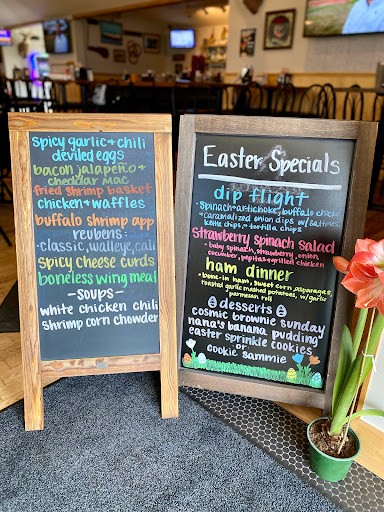 spicy garlic + chili
deviled eggs
bacon jalapeño +
cheddar mac
fried shrimp basket
chicken + waffles
buffalo shrimp app
reubens:
-classic, walleye, cali
spicy cheese curds
boneless wing meal
-soups-
white chicken chili
shrimp corn chowder
Easter Specials
dip flight
-spinach + artichoke, buffalo chicken
+ caramalized onion dips w/ saltines,
kettle chips + tortilla chips
strawberry spinach salad
- baby spinach, strawberry, onion,
cucumber, pepitas + grilled chicken
ham dinner
- bone-in ham, sweet corn, asparagus,
roasted garlic mashed potatoes, w/ garlic
parmesan roll
desserts
cosmic brownie sunday
nana's banana pudding
easter sprinkle cookies
or
cookie sammie